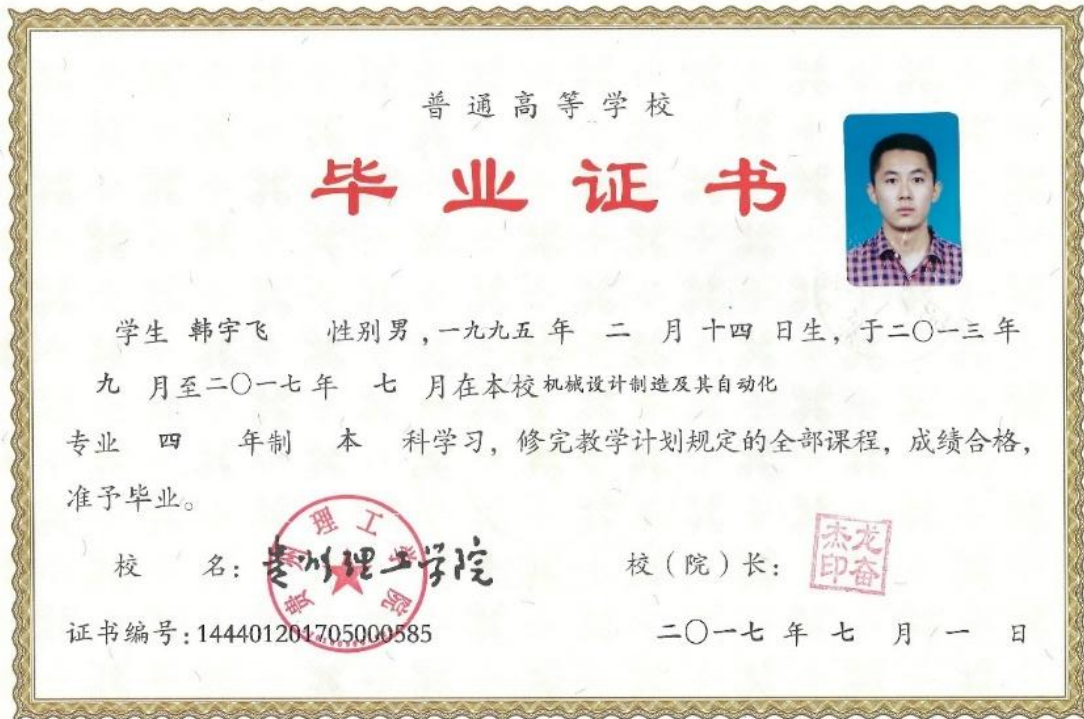 普通高等学校
毕业证书
学生 韩宇飞 性别男,一九九五年 二 月十四日生,于二〇一三年
九 月至二〇一七年 七 月在本校机械设计制造及其自动化
专业 四 年制 本 科学习,修完教学计划规定的全部课程,成绩合格,
准予毕业。
校 名:贵州理工学院
贵州理工学院
校(院)长:
龙奋杰印
证书编号:144401201705000585
二〇一七年七月一日